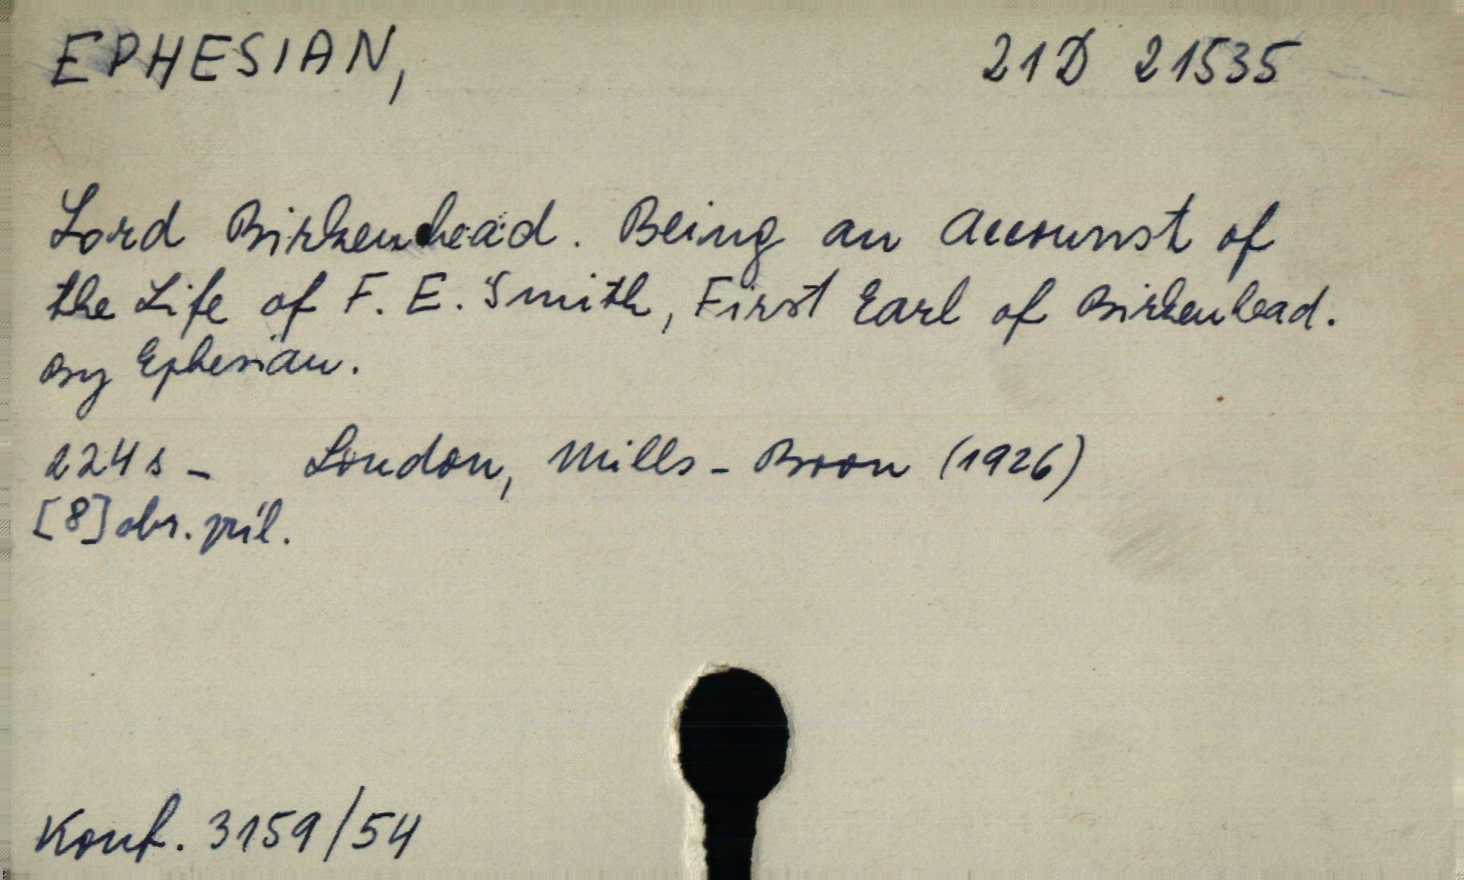 EPHESIAN, 21D 21535
Lord Birkenhead. Being an Account of
the Life of F. E. Smith, First Earl of Birkenhead.
By Ephesian.
224 s - London, Mills - Boon (1926)
[8] obr. příl.
Konf. 3159/54